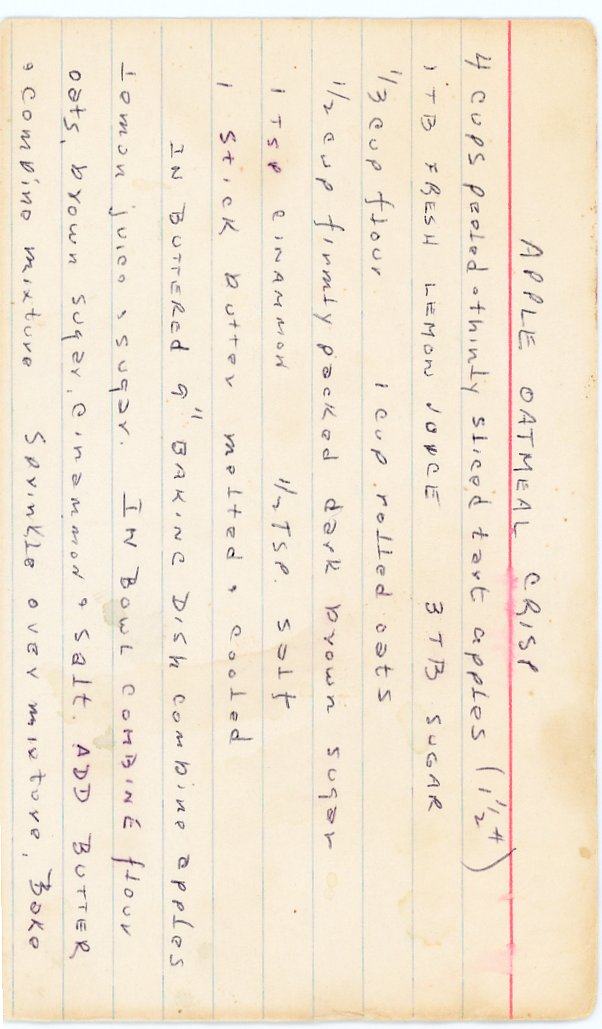 APPLE OATMEAL CRISP
4 cups peeled + thinly sliced tart apples (1 1/2 #)
1 TB FRESH LEMON JUICE 3 TB SUGAR
1/3 cup flour 1 cup rolled oats
1/2 cup firmly packed dark brown sugar
1 TSP CINAMMON 1/2 TSP. salt
1 Stick butter melted + cooled
IN BUTTERED 9" BAKING DISH combine apples
lemon juice + sugar. IN BOWL COMBINE flour
oats, brown sugar, cinammon + salt. ADD BUTTER
+ combine mixture Sprinkle over mixture. Bake